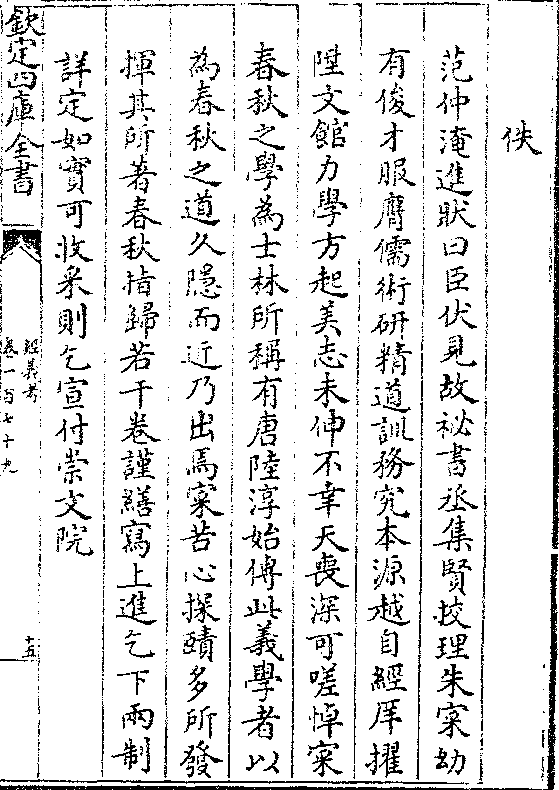 佚
范仲淹進狀曰臣伏見故祕書丞集賢挍理朱寀幼
有俊才服膺儒術研精道訓務究本源越自經庠擢
陞文館力學方起美志未伸不幸天喪深可嗟悼寀
春秋之學為士林所稱有唐陸淳始傳此義學者以
為春秋之道久隱而近乃出焉寀苦心探賾多所發
揮其所著春秋指歸若干卷謹繕寫上進乞下兩制
詳定如實可收采則乞宣付崇文院
欽定四庫全書
經義考
卷一百七十九
十五